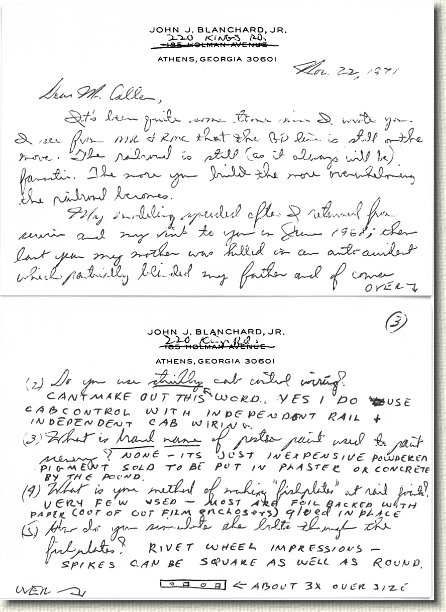 JOHN J. BLANCHARD, JR.
220 KINGS RD.
185 HOLMAN AVENUE
ATHENS, GEORGIA 30601
Nov. 22, 1971
Dear Mr. Allen,
It's been quite some time since I wrote you.
I see from MR & RMC that the GD line is still on the
move. The railroad is still (as it always will be)
fantastic. The more you build the more overwhelming
the railroad becomes.
My modeling speeded after I returned from
service and my visit to you in June 1968; then
last year my mother was killed in an auto accident
which partially blinded my father and of course
OVER
3
JOHN J. BLANCHARD, JR.
220 Kings Rd.
185 HOLMAN AVENUE
ATHENS, GEORGIA 30601
(2) Do you use strictly cab control wiring?
CANT MAKE OUT THIS WORD. YES I DO USE
CAB CONTROL WITH INDEPENDENT RAIL &
INDEPENDENT CAB WIRING.
(3) What is brand name of poster paint used to paint
scenery? NONE - ITS JUST INEXPENSIVE POWDERED
PIGMENT SOLD TO BE PUT IN PLASTER OR CONCRETE
BY THE POUND.
(4) What is your method of making "fishplates" at rail joints?
VERY FEW USED - MOST ARE FOIL BACKED WITH
PAPER (OUT OF CUT FILM ENCLOSORS) GLUED IN PLACE
(5) How do you simulate the bolts through the
fishplates? RIVET WHEEL IMPRESSIONS -
SPIKES CAN BE SQUARE AS WELL AS ROUND.
OVER
← ABOUT 3X OVER SIZE